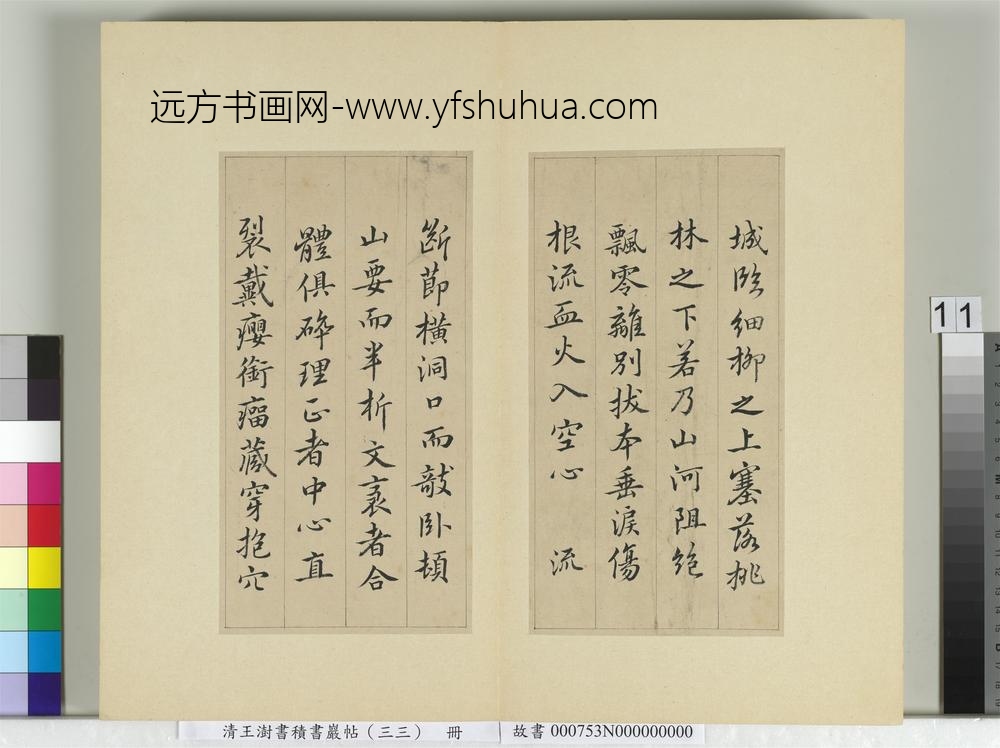 远方书画网-www.yfshuhua.com
城臨細柳之上塞落桃
林之下若乃山河阻絶
飄零離別拔本垂淚傷
根流血火入空心 流
斷節橫洞口而敧臥頓
山要而半折文衺者合
體俱碎理正者中心直
裂戴癭銜瘤藏穿抱穴
11
清王澍書積書巖帖（三三） 冊
故書 000753N000000000